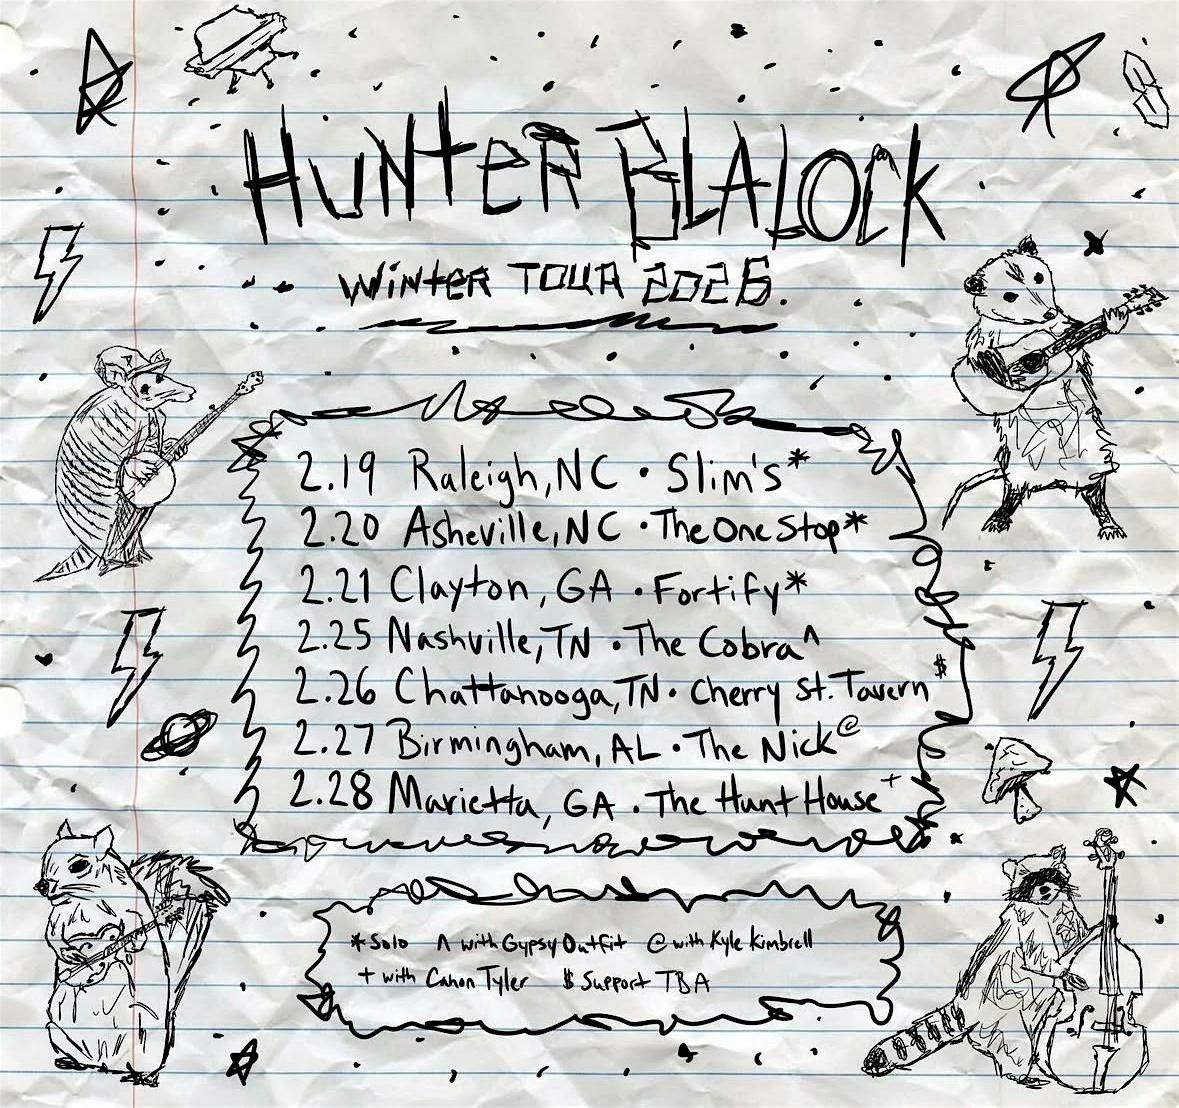 HUNTER BLALOCK
WINTER TOUR 2026.
2.19 Raleigh, NC • Slim's*
2.20 Asheville, NC • The One Stop*
2.21 Clayton, GA • Fortify*
2.25 Nashville, TN • The Cobra^
2.26 Chattanooga, TN • Cherry St. Tavern $
2.27 Birmingham, AL • The Nick @
2.28 Marietta, GA • The Hunt House +
* Solo ^ with Gypsy Outfit @ with Kyle Kimbrell
+ with Canon Tyler $ Support TBA